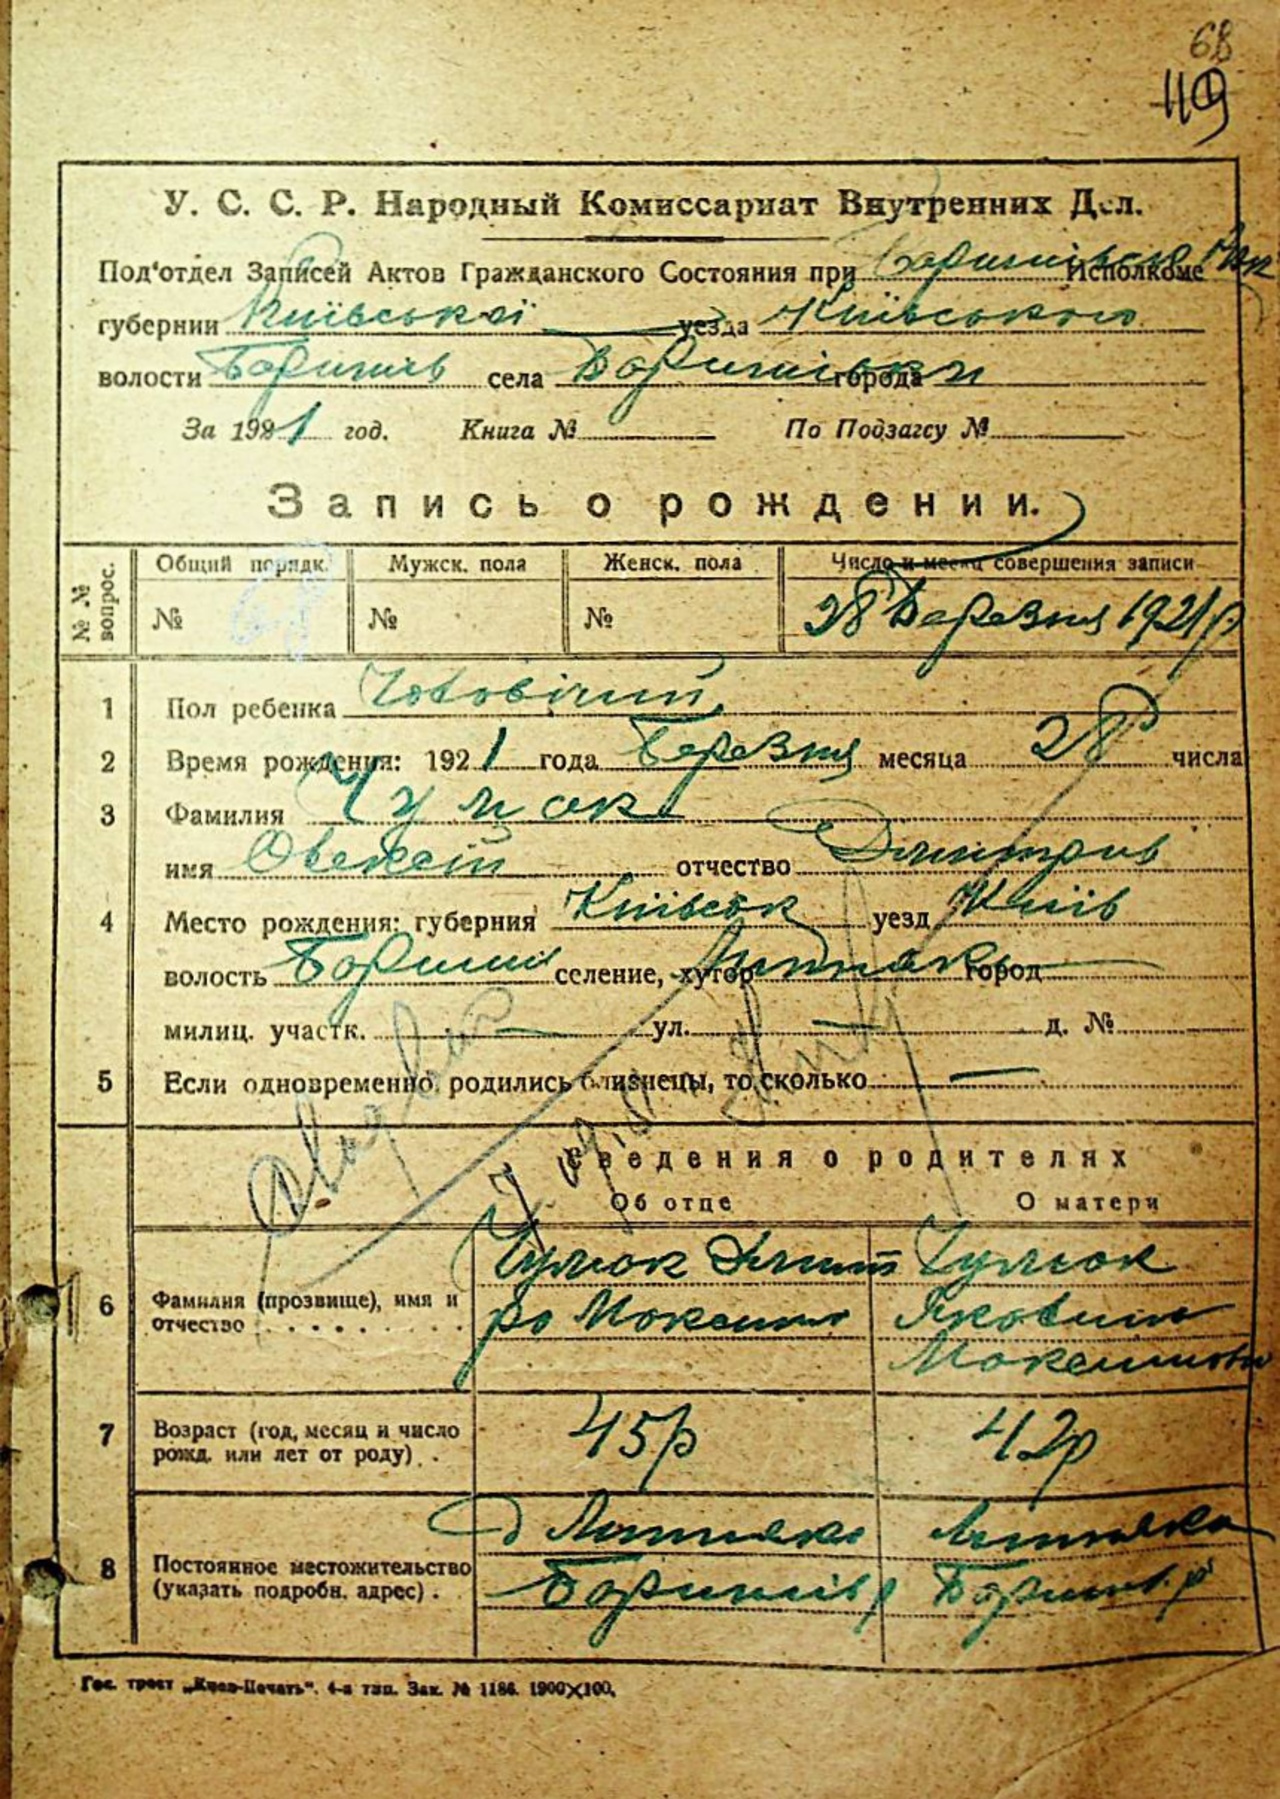 68
119
У. С. С. Р. Народный Комиссариат Внутренних Дел.
Под'отдел Записей Актов Гражданского Состояния при Исполкоме
губернии Київської уезда Київського
волости Баришів села Баришівки города
За 1921 год. Книга № По Подзагсу №
Запись о рождении.
№№ вопрос. Общий порядк. Мужск. пола Женск. пола Число и месяц совершения записи
№ 68 № № 28 Березня 1921 р
1 Пол ребенка Чоловічий
2 Время рождения: 1921 года Березня месяца 28 числа
3 Фамилия Чумак
имя отчество Дмитрів
4 Место рождения: губерния Київськ уезд Київ
волость Баришів селение, хутор Липняки город
милиц. участк. — ул. — д. №
5 Если одновременно родились близнецы, то сколько —
Сведения о родителях
Об отце О матери
6 Фамилия (прозвище), имя и отчество
Чумак Дмит Чумак
ро Максимів
Максимовн
7 Возраст (год, месяц и число рожд. или лет от роду) 45р 42р
8 Постоянное местожительство (указать подробн. адрес)
Липняки Липняки
Баришів р Баришів. р
Гос. трест „Киев-Печать“. 4-я тип. Зак. № 1186. 1900×100.